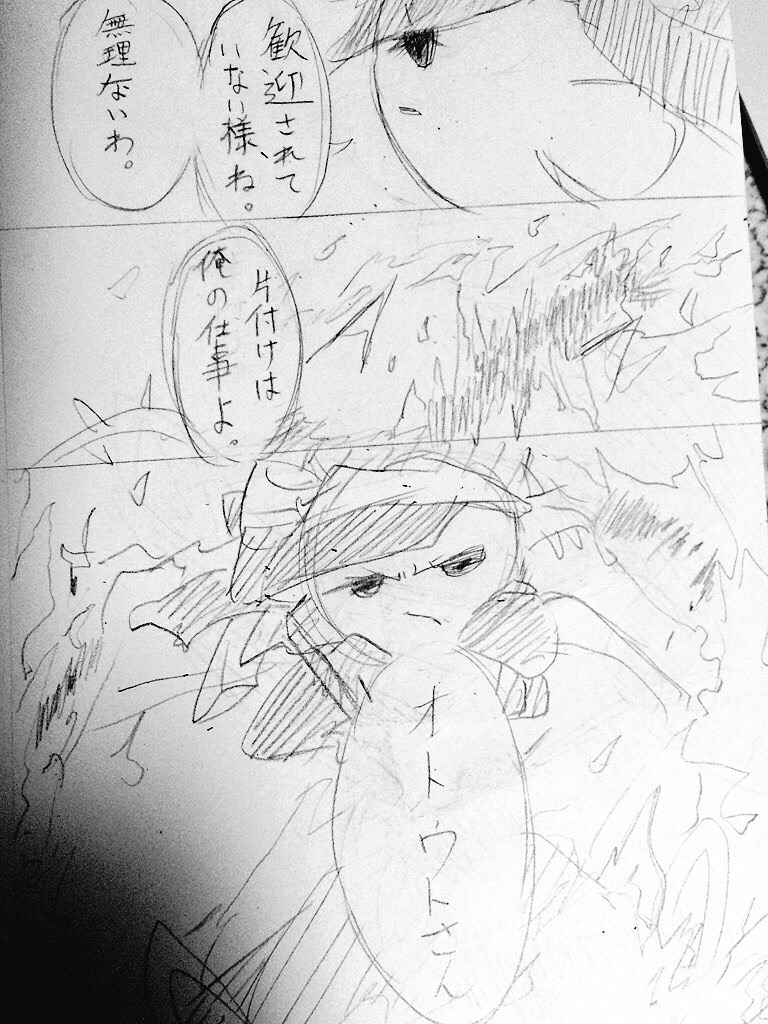 歓迎されて
いない様、ね。
無理ないわ。
片付けは
俺の仕事よ。
オトウトさん